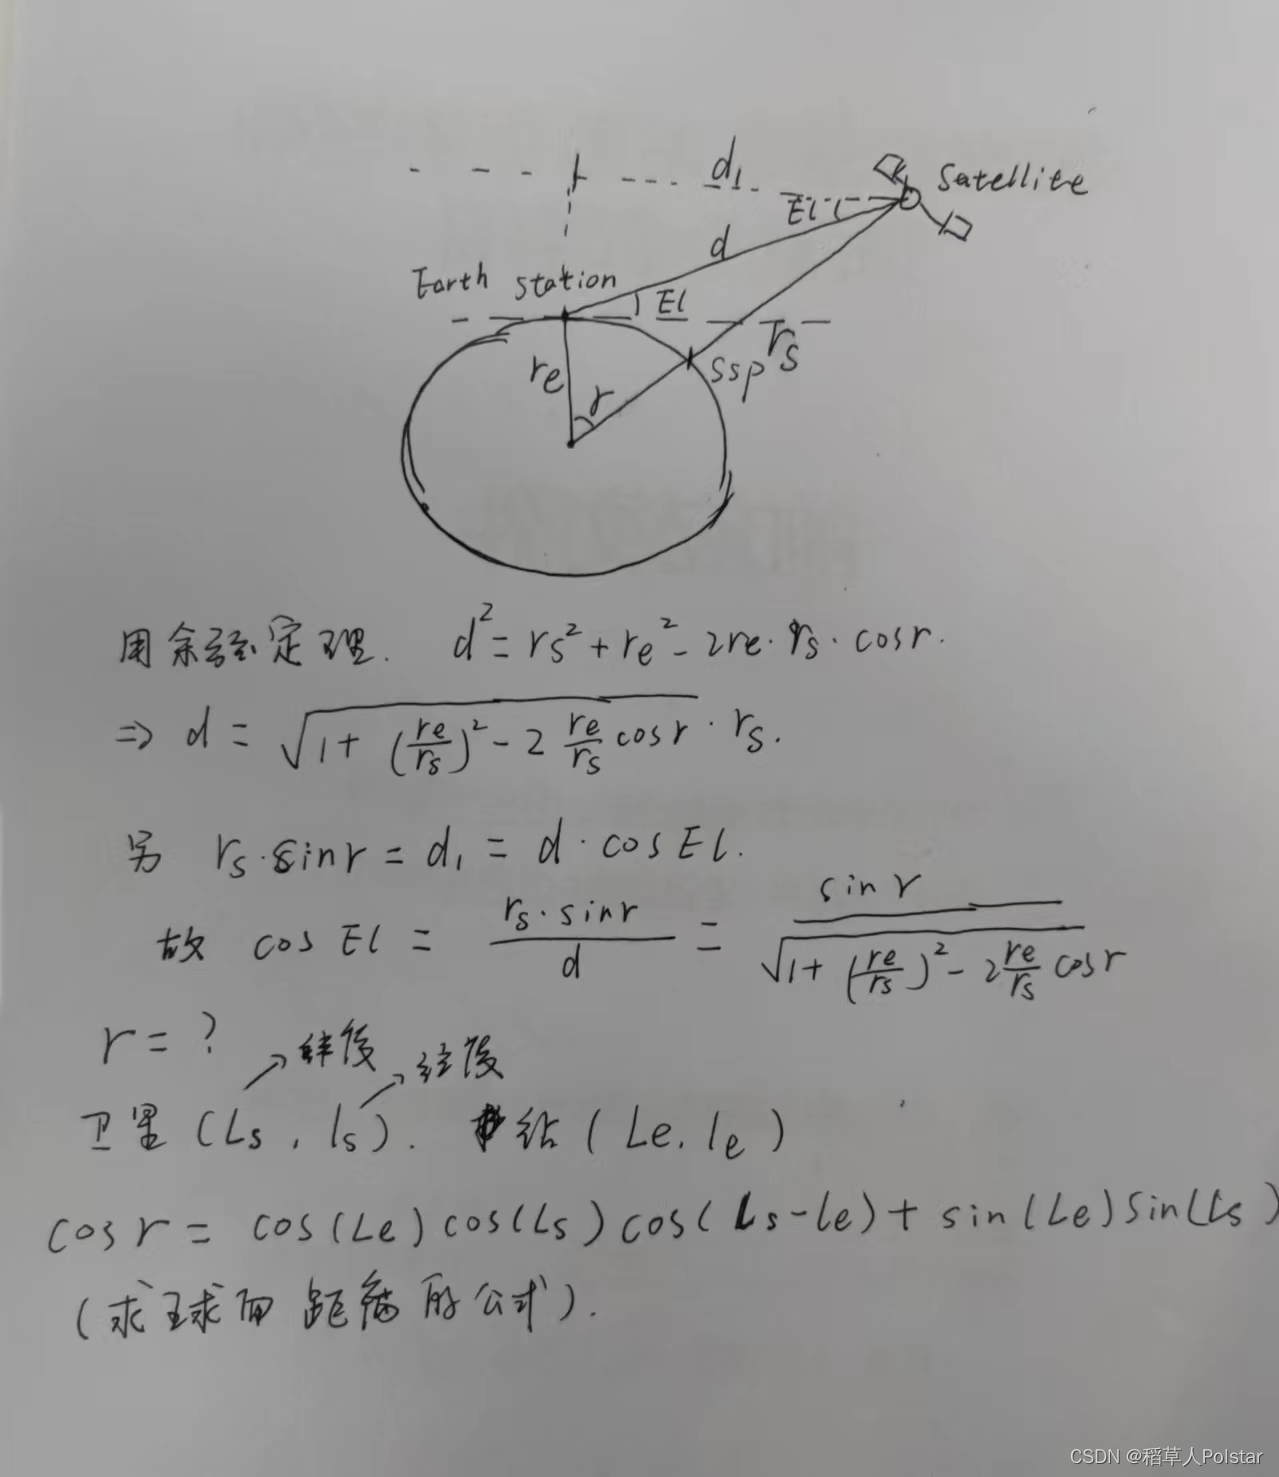 d₁
Satellite
El
d
Earth station
El
re
r
ssp
rs
用余弦定理. d² = rs² + re² - 2re · rs · cosr.
⇒ d = √(1 + (re/rs)² - 2 re/rs cosr) · rs.
另 rs · sinr = d₁ = d · cos El.
故 cos El = (rs · sinr)/d = sin r/√(1 + (re/rs)² - 2 re/rs cosr)
r = ? 纬度 经度
卫星 (Ls, ls). 站 (Le, le)
cos r = cos(Le) cos(Ls) cos(ls - le) + sin(Le) Sin(Ls)
(求球面距离的公式).
CSDN @稻草人Polstar